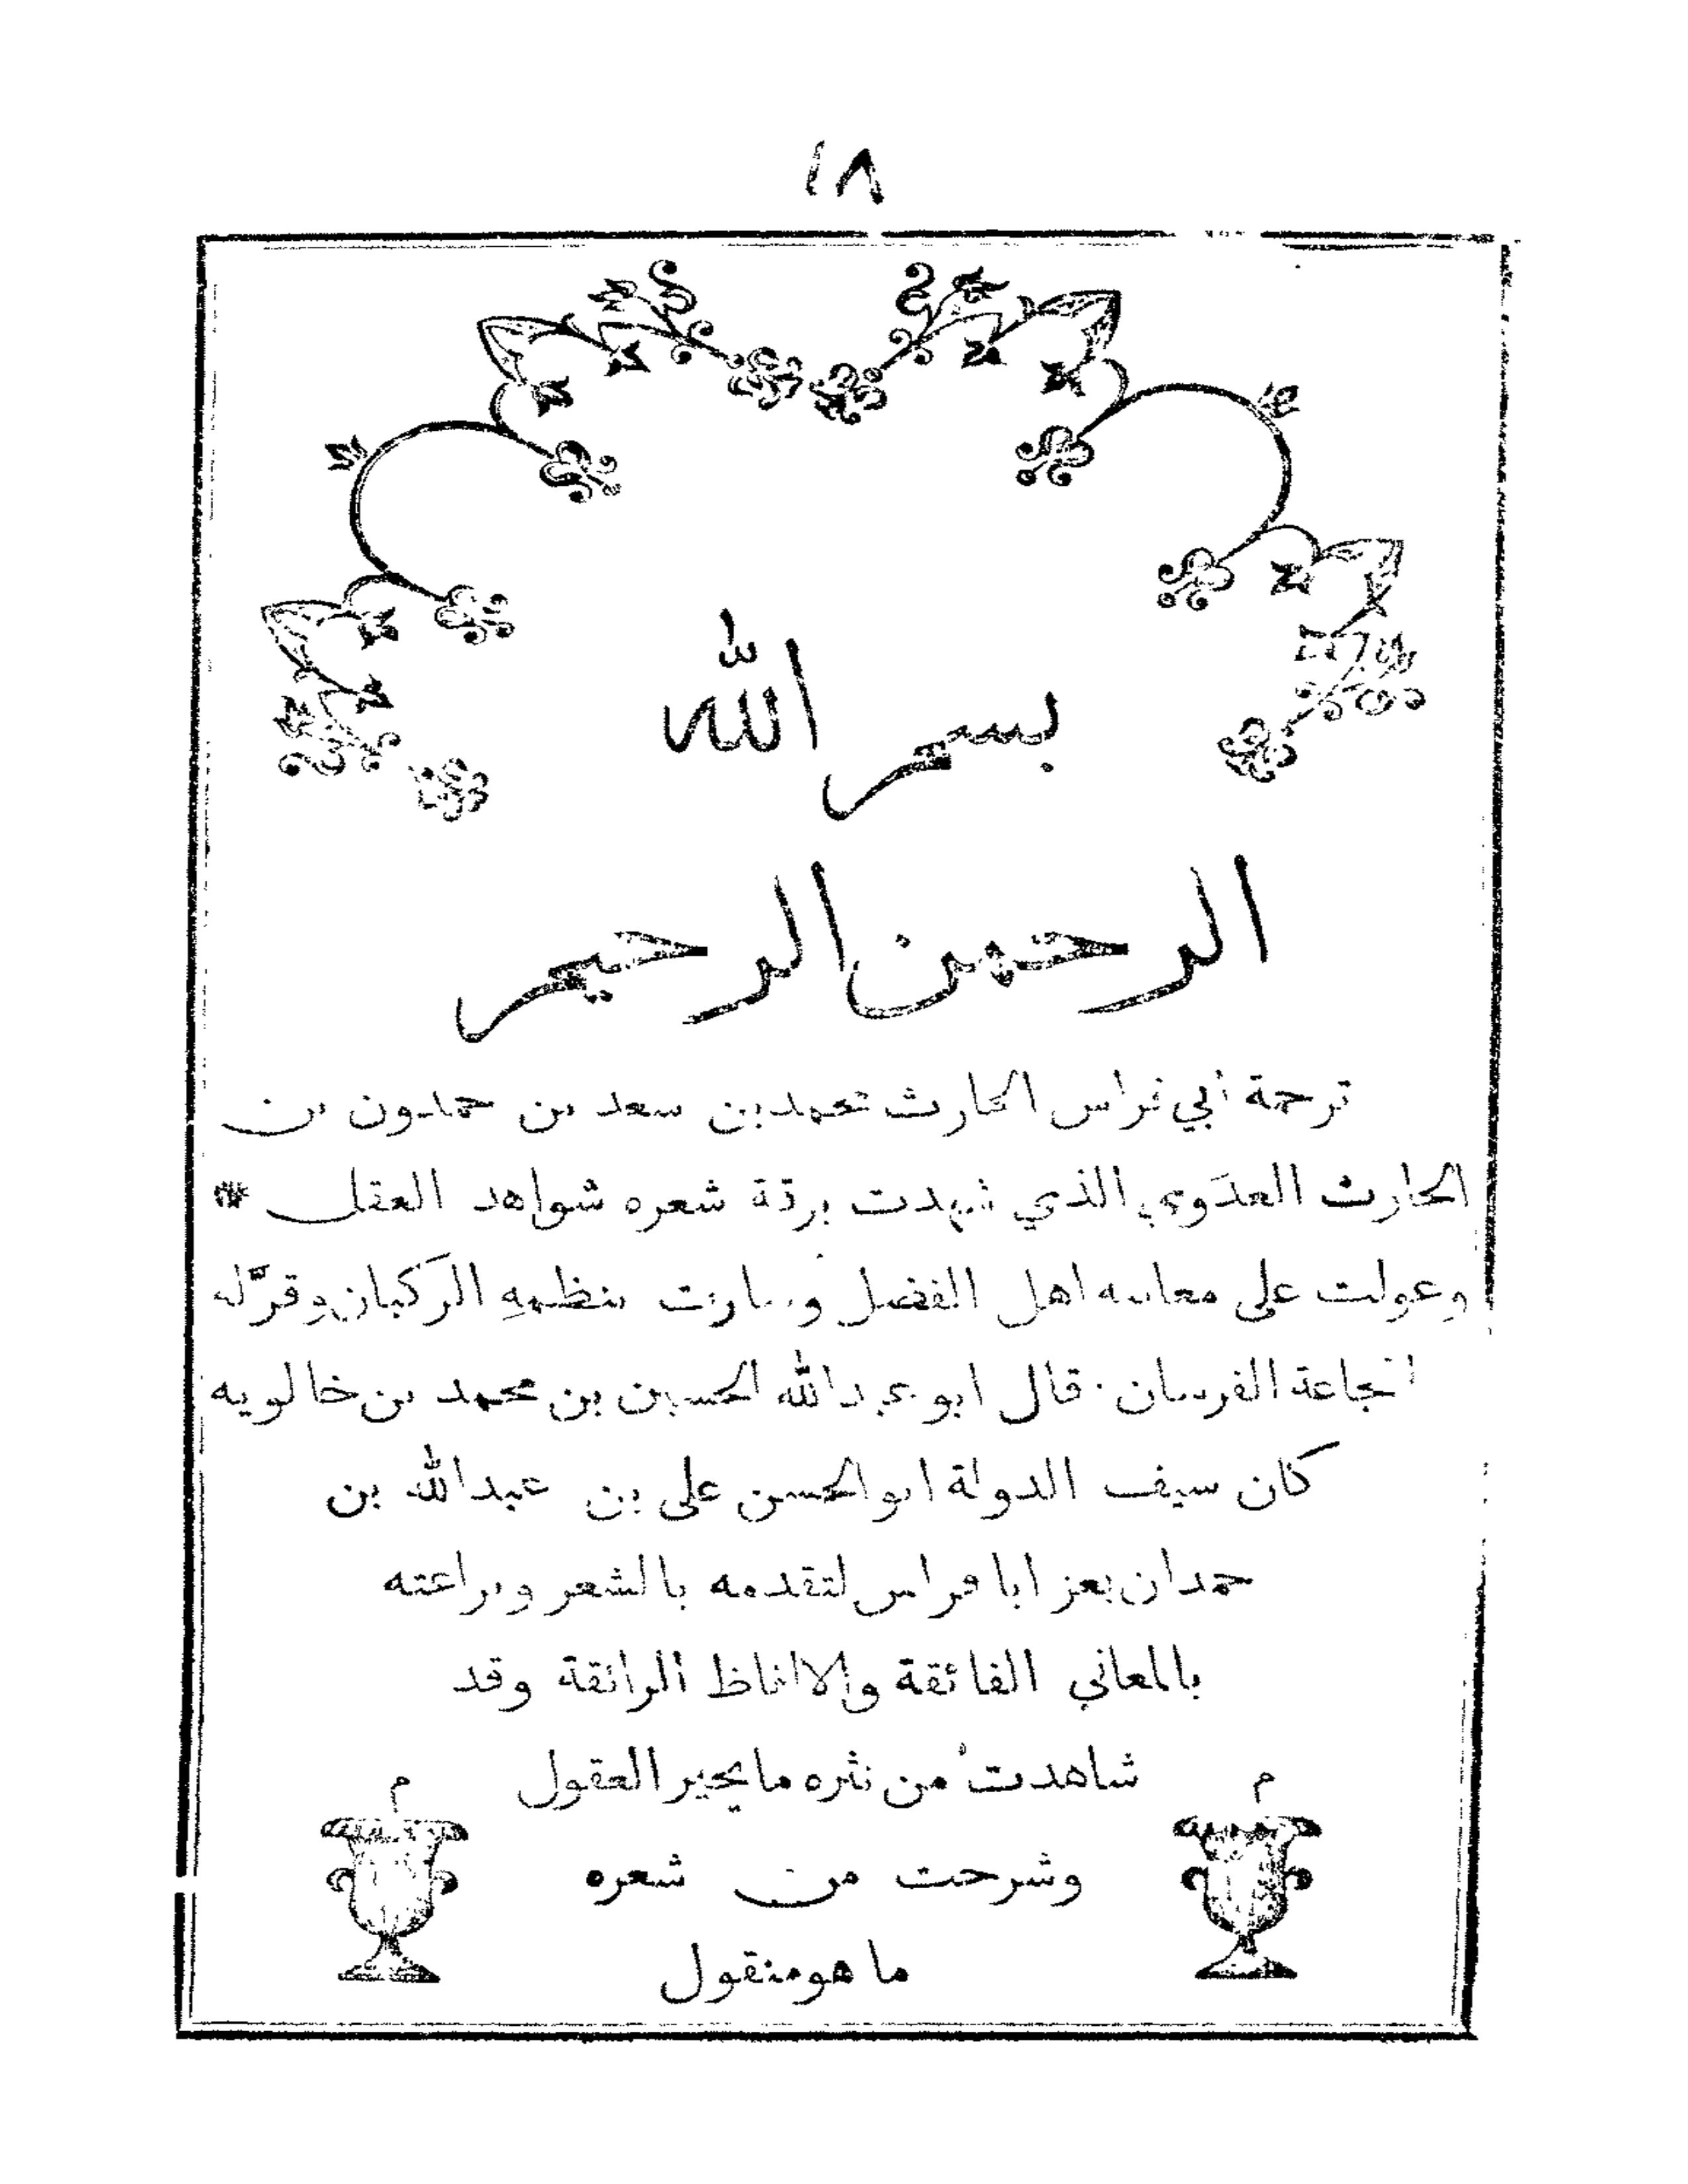 ١٨
بسم الله
الرحمن الرحيم
ترجمة أبي فراس الحارث محمد بن سعد بن حمدون بن
الحارث العدَوي الذي شهدت برقة شعره شواهد العقل *
وعولت على معانيه اهل الفضل وسارت بنظمهِ الركبان وقرَّله
بالشجاعة الفرسان · قال ابو عبد الله الحسين بن محمد بن خالويه
كان سيف الدولة ابو الحسن علي بن عبد الله بن
حمدان يعز ابا فراس لتقدمه بالشعر وبراعته
بالمعاني الفائقة والالفاظ الرائقة وقد
شاهدتُ من نثره ما يحير العقول
م م
وشرحت من شعره
ما هو منقول